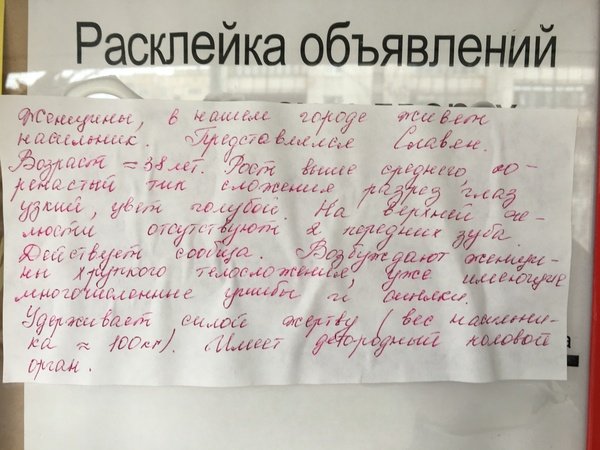 Расклейка объявлений
Женщины, в нашем городе живет
насильник. Представлялся Славян.
Возраст ≈ 38 лет. Рост выше среднего ко-
ренастый тип сложения, разрез глаз
узкий, цвет голубой. На верхней че-
люсти отсутствуют 2 передних зуба.
Действует сообща. Возбуждают женщи-
ны хрупкого телосложения, уже имеющие
многочисленные ушибы и синяки.
Удерживает силой жертву (вес насильни-
ка ≈ 100кг). Имеет детородный половой
орган.